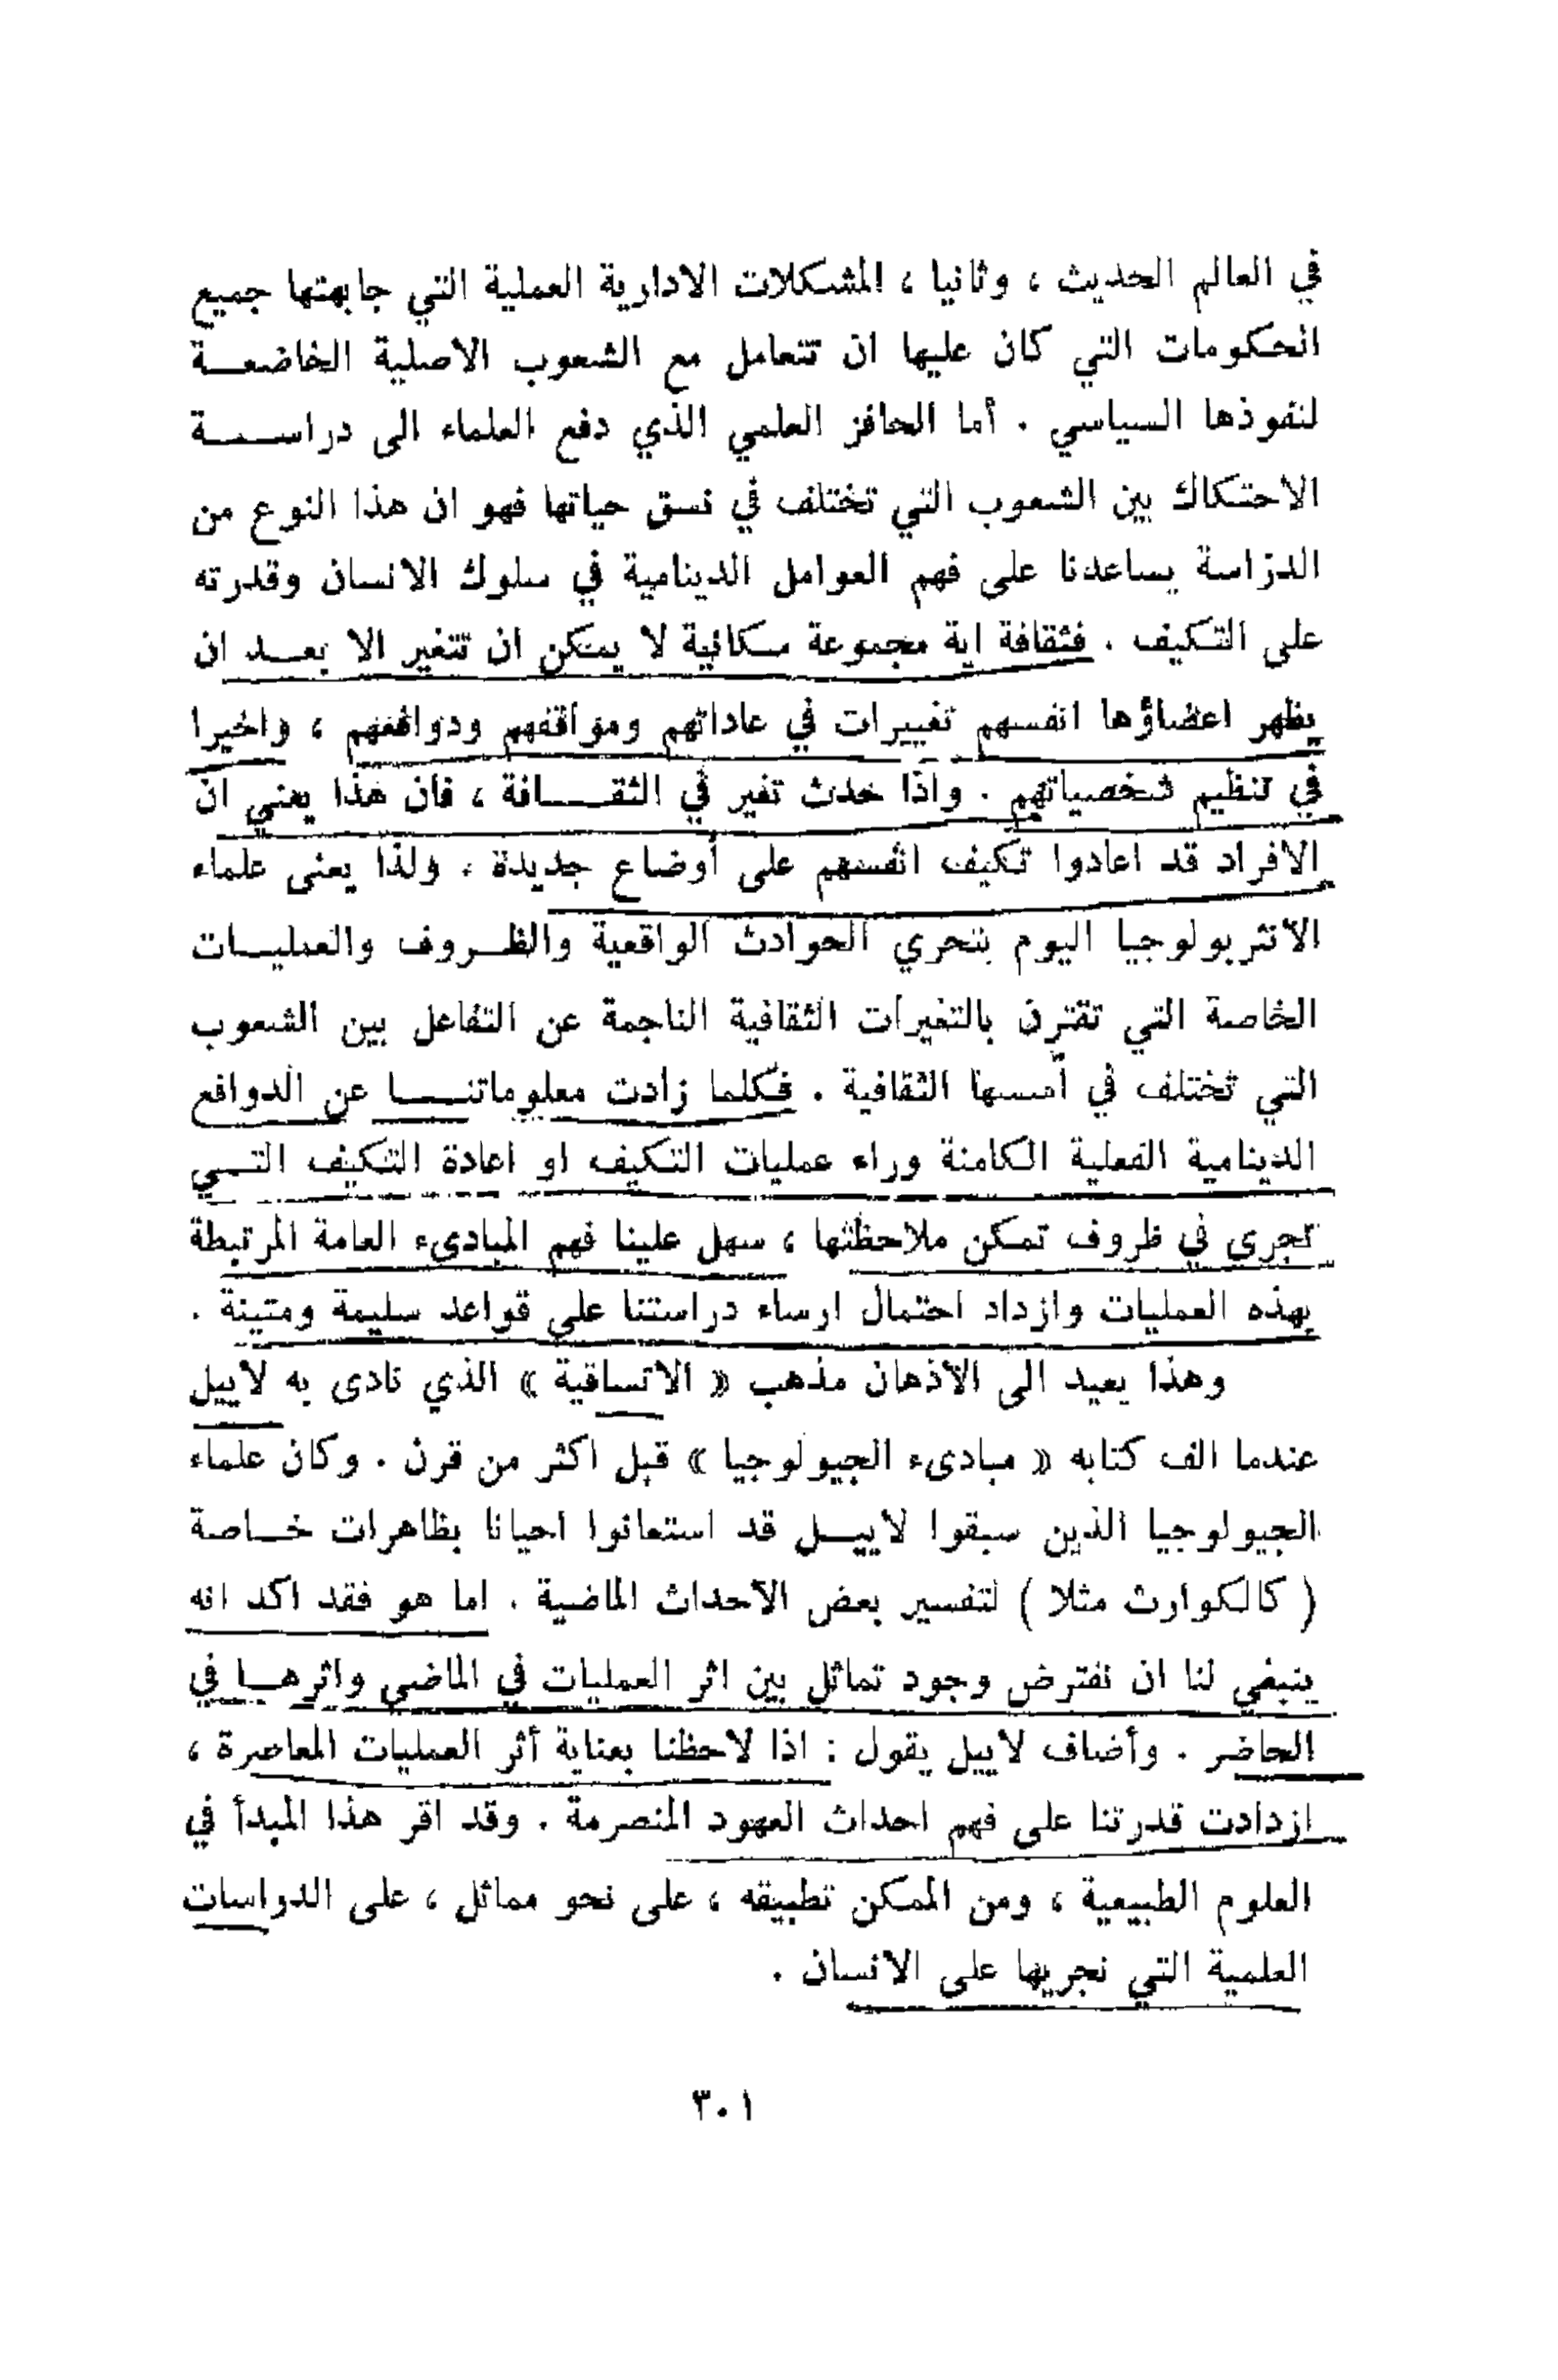 في العالم الحديث ، وثانيا ، المشكلات الادارية العملية التي جابهتها جميع
الحكومات التي كان عليها ان تتعامل مع الشعوب الاصلية الخاضعـــة
لنفوذها السياسي . أما الحافز العلمي الذي دفع العلماء الى دراســـة
الاحتكاك بين الشعوب التي تختلف في نسق حياتها فهو ان هذا النوع من
الدراسة يساعدنا على فهم العوامل الدينامية في سلوك الانسان وقدرته
على التكيف . فثقافة اية مجموعة سكانية لا يمكن ان تتغير الا بعــد ان
يظهر اعضاؤها انفسهم تغييرات في عاداتهم ومواقفهم ودوافعهم ، واخيرا
في تنظيم شخصياتهم . واذا حدث تغير في الثقـــافة ، فان هذا يعني ان
الافراد قد اعادوا تكيف انفسهم على أوضاع جديدة . ولذا يعنى علماء
الانثربولوجيا اليوم بتحري الحوادث الواقعية والظــروف والعمليــات
الخاصة التي تقترن بالتغيرات الثقافية الناجمة عن التفاعل بين الشعوب
التي تختلف في أسسها الثقافية . فكلما زادت معلوماتنــا عن الدوافع
الدينامية الفعلية الكامنة وراء عمليات التكيف او اعادة التكيف التــي
تجري في ظروف تمكن ملاحظتها ، سهل علينا فهم المبادىء العامة المرتبطة
بهذه العمليات وازداد احتمال ارساء دراستنا على قواعد سليمة ومتينة .
وهذا يعيد الى الأذهان مذهب « الاتساقية » الذي نادى به لاييل
عندما الف كتابه « مبادىء الجيولوجيا » قبل اكثر من قرن . وكان علماء
الجيولوجيا الذين سبقوا لاييــل قد استعانوا احيانا بظاهرات خــاصة
( كالكوارث مثلا ) لتفسير بعض الأحداث الماضية . اما هو فقد اكد انه
ينبغي لنا ان نفترض وجود تماثل بين اثر العمليات في الماضي واثرهــا في
الحاضر . وأضاف لاييل يقول : اذا لاحظنا بعناية أثر العمليات المعاصرة ،
ازدادت قدرتنا على فهم احداث العهود المنصرمة . وقد اقر هذا المبدأ في
العلوم الطبيعية ، ومن الممكن تطبيقه ، على نحو مماثل ، على الدراسات
العلمية التي نجريها على الانسان .
٣٠١